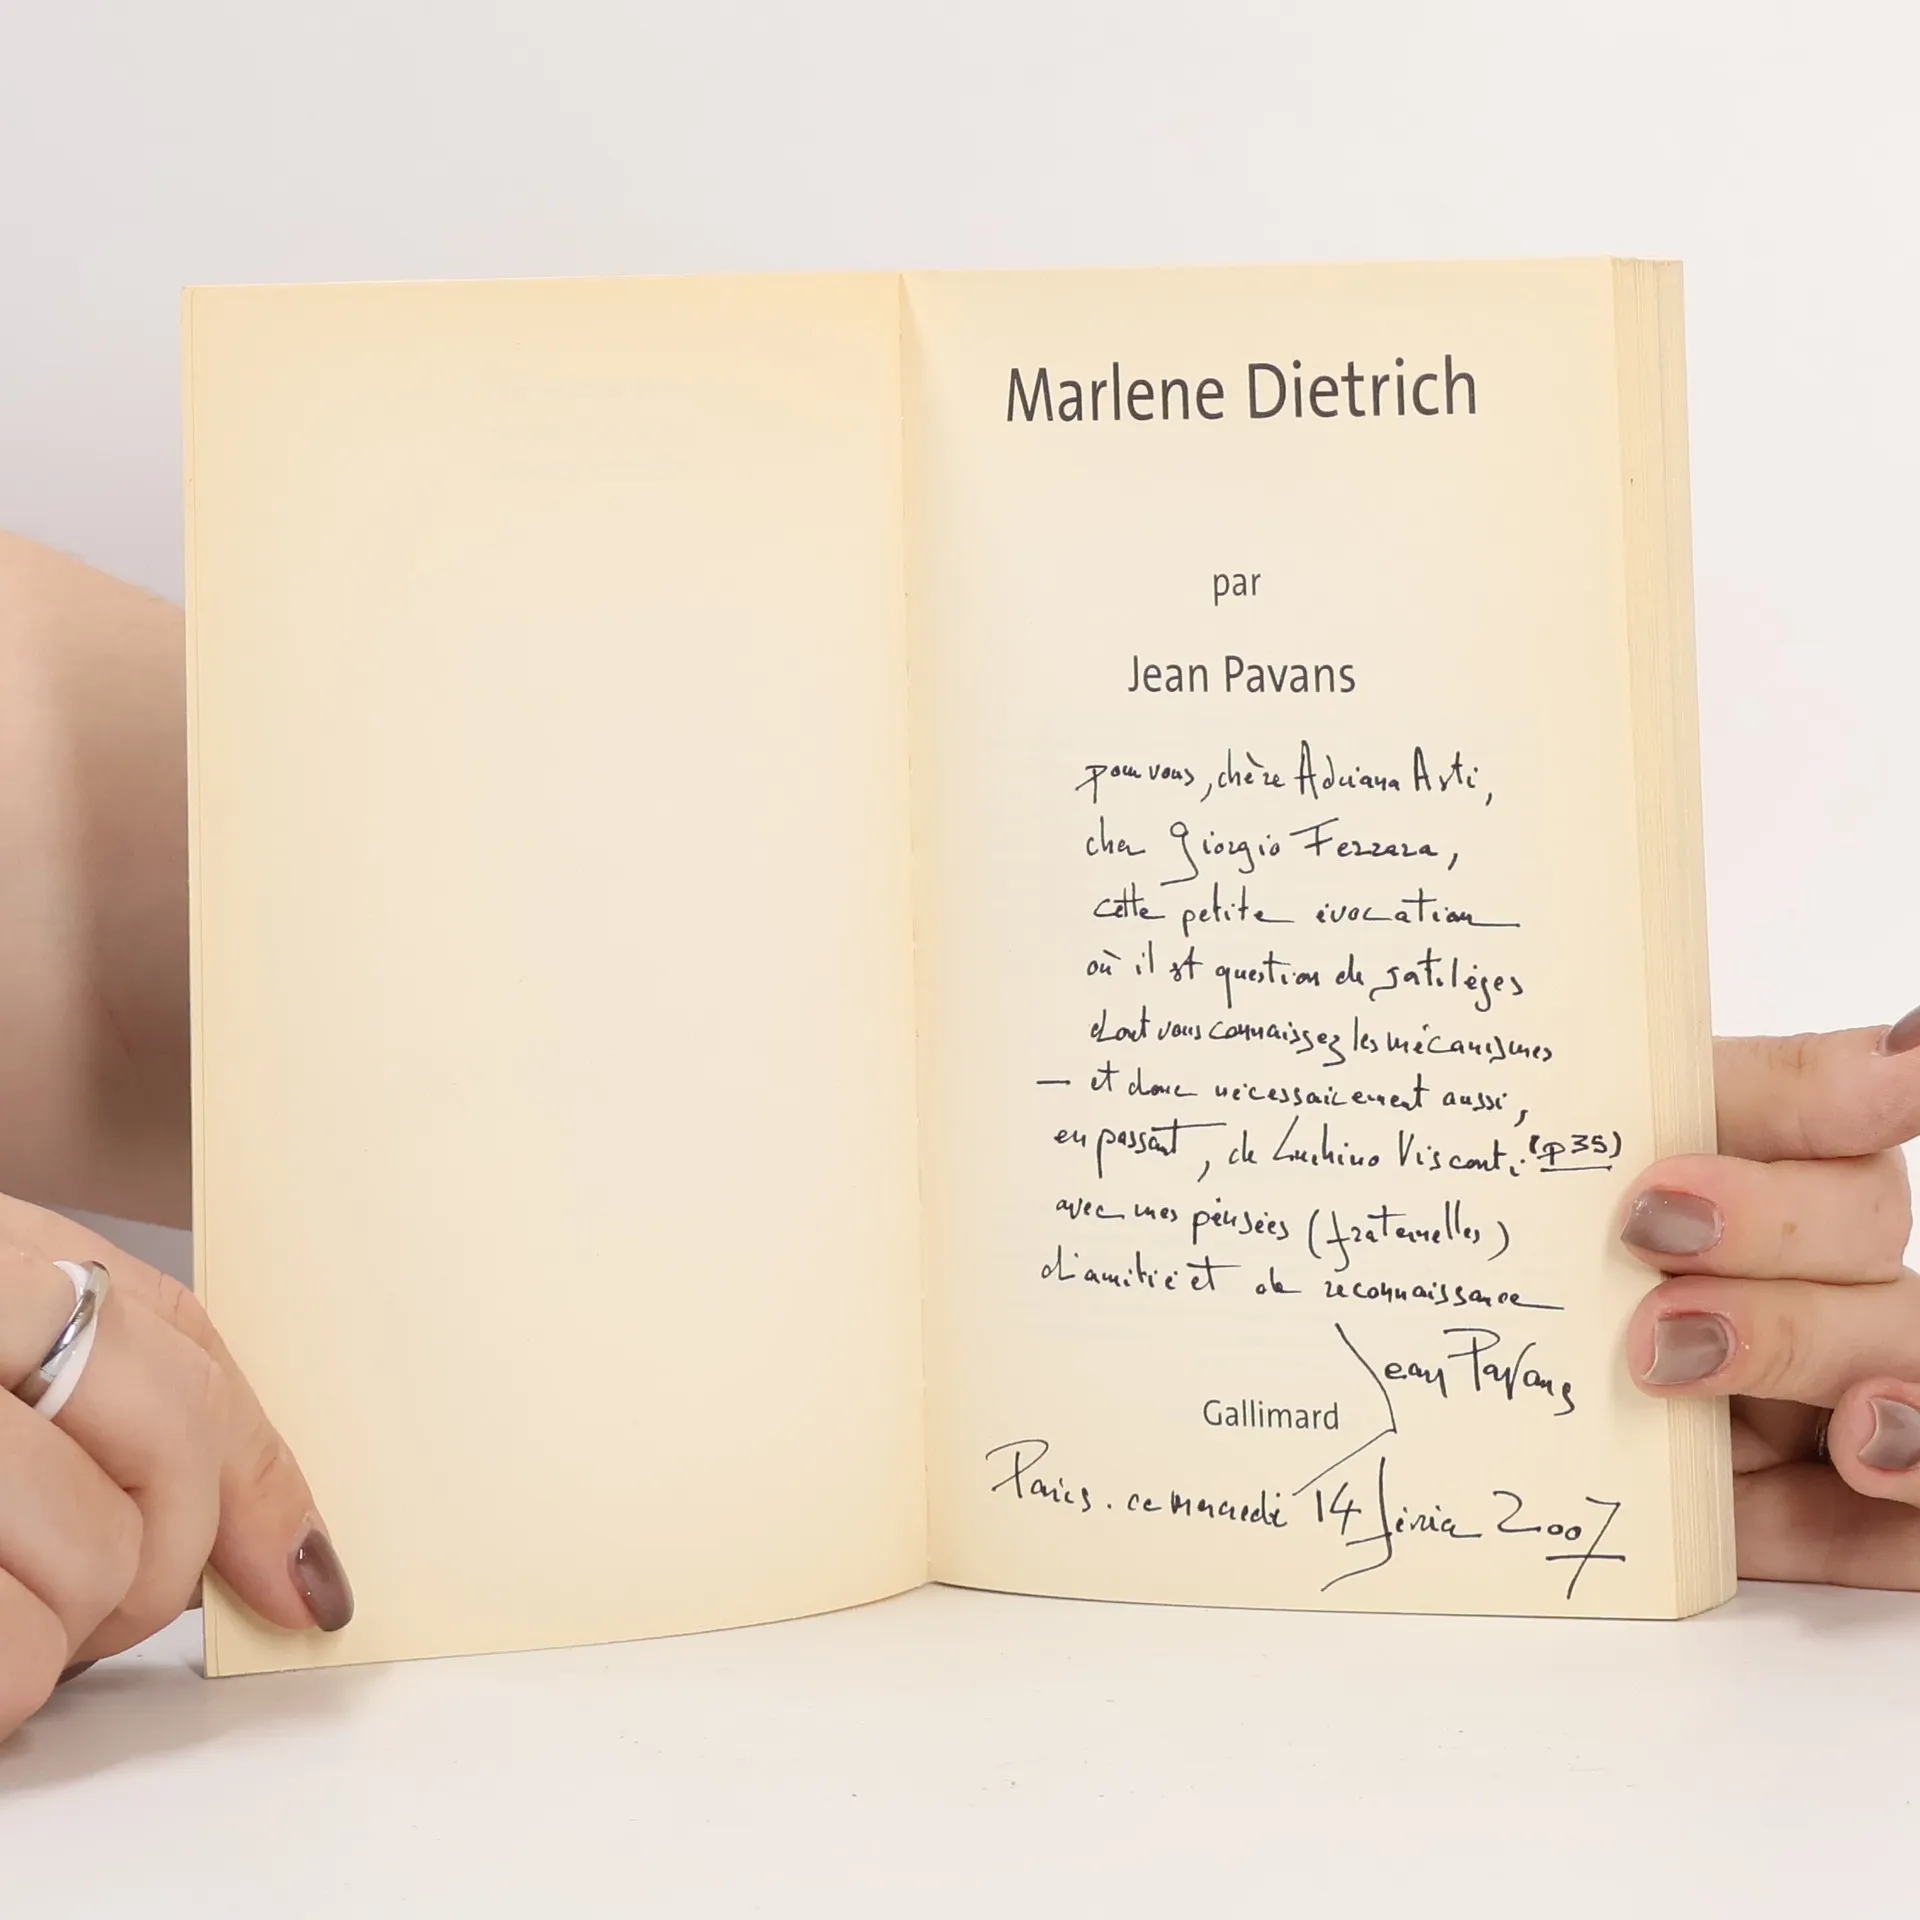 Marlene Dietrich
par
Jean Pavans
pour vous, chère Adriana Asti,
cher Giorgio Ferrara,
cette petite évocation
où il est question de
dont vous connaissez les mécanismes
— et donc nécessairement aussi,
en passant, de Luchino Visconti (p 35)
avec mes pensées (fraternelles)
d'amitié et de reconnaissance
Jean Pavans
Gallimard
Paris. ce mercredi 14 février 2007